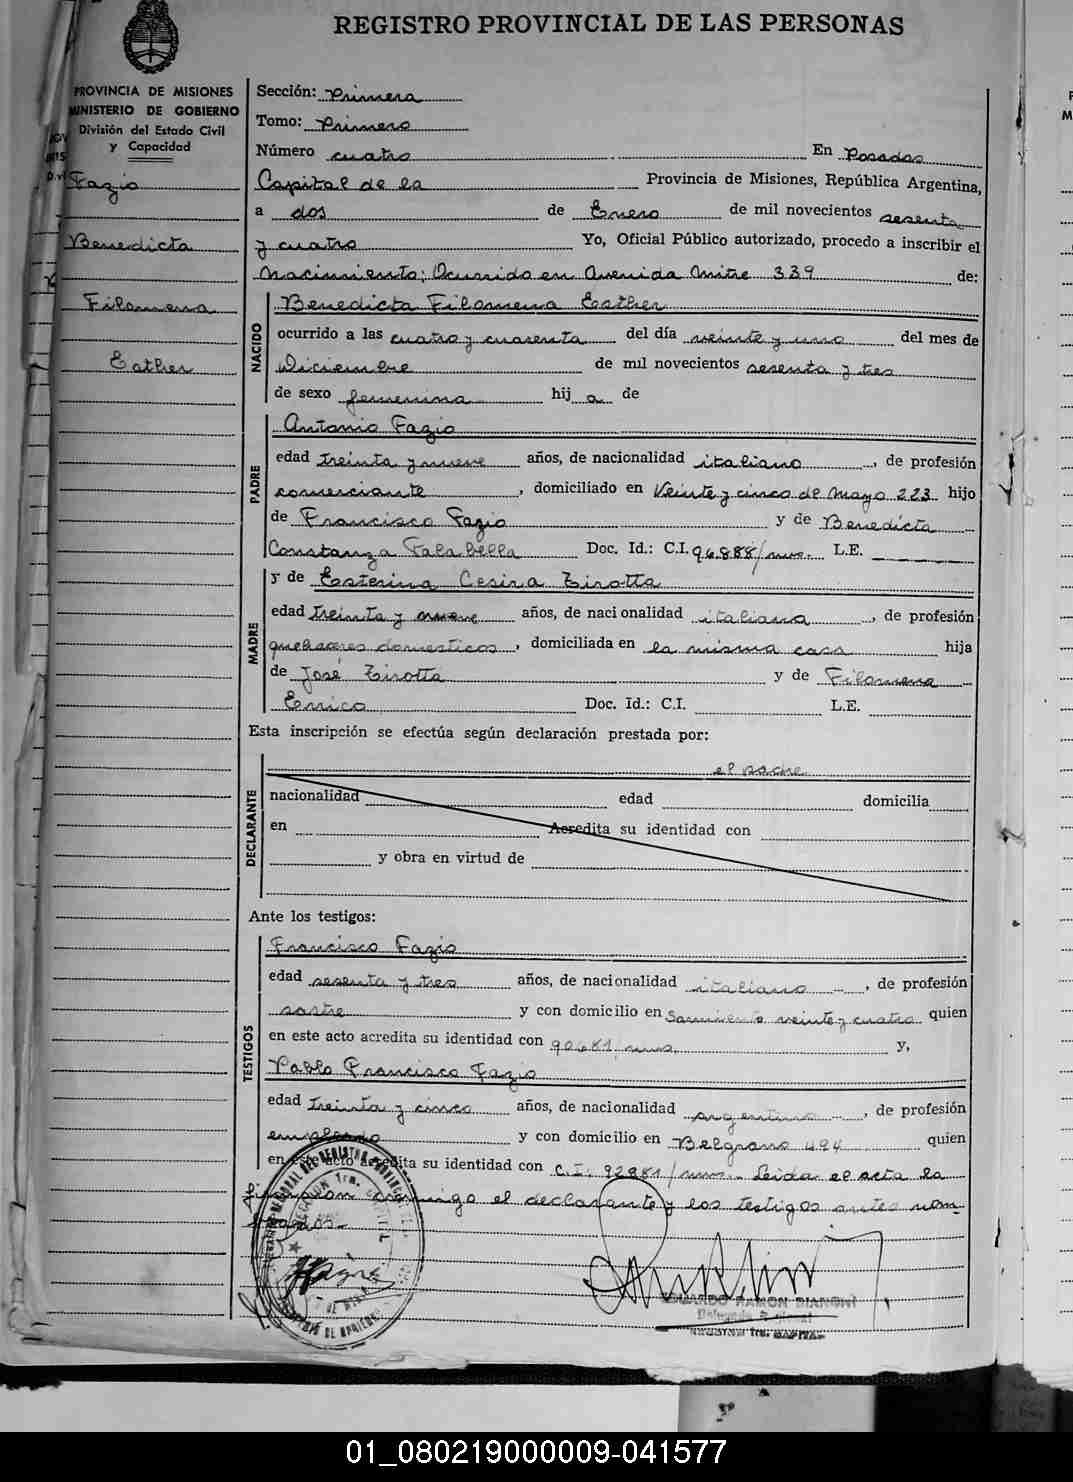 REGISTRO PROVINCIAL DE LAS PERSONAS
PROVINCIA DE MISIONES
MINISTERIO DE GOBIERNO
División del Estado Civil
y Capacidad
Fazio
Benedicta
Filomena
Esther
Sección: Primera
Tomo: Primero
Número cuatro En Posadas
Capital de la Provincia de Misiones, República Argentina,
a dos de Enero de mil novecientos sesenta
y cuatro Yo, Oficial Público autorizado, procedo a inscribir el
Nacimiento: Ocurrido en Avenida Mitre 339 de:
NACIDO
Benedicta Filomena Esther
ocurrido a las cuatro y cuarenta del día veinte y uno del mes de
Diciembre de mil novecientos sesenta y tres
de sexo femenina hij a de
PADRE
Antonio Fazio
edad treinta y nueve años, de nacionalidad italiano, de profesión
comerciante, domiciliado en Veinte y cinco de Mayo 223 hijo
de Francisco Fazio y de Benedicta
Constanza Falabella Doc. Id.: C.I. 96.888/mnes. L.E.
MADRE
y de Esterina Cesira Zirotta
edad treinta y nueve años, de nacionalidad italiana, de profesión
quehaceres domesticos, domiciliada en la misma casa hija
de José Zirotta y de Filomena
Errico Doc. Id.: C.I. L.E.
Esta inscripción se efectúa según declaración prestada por:
DECLARANTE
el padre
nacionalidad edad domicilia
en Acredita su identidad con
y obra en virtud de
Ante los testigos:
TESTIGOS
Francisco Fazio
edad sesenta y tres años, de nacionalidad italiano, de profesión
sastre y con domicilio en Sarmiento veinte y cuatro quien
en este acto acredita su identidad con 90681 mns. y,
Pablo Francisco Fazio
edad treinta y cinco años, de nacionalidad argentino, de profesión
empleado y con domicilio en Belgrano 494 quien
en este acto acredita su identidad con C.I. 92981/mns. Leida el acta la
conmigo el declarante y los testigos antes nom-
brados-
EDUARDO RAMON BIANCHI
Delegado Regional
01_080219000009-041577